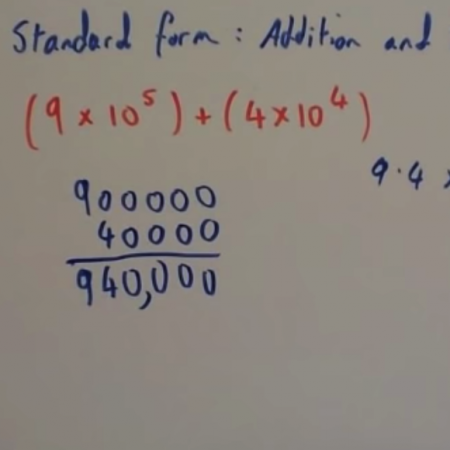 Standard form: Addition and
(9 × 10⁵) + (4 × 10⁴)
9.4 ×
900000
40000
940,000